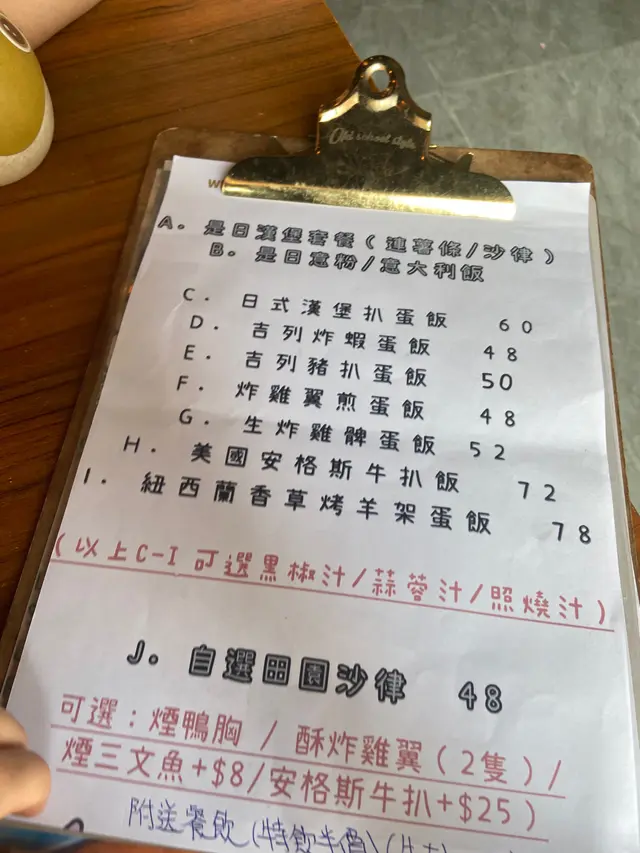 Old school style
A. 是日漢堡套餐(連薯條/沙律)
B. 是日意粉/意大利飯
C. 日式漢堡扒蛋飯 60
D. 吉列炸蝦蛋飯 48
E. 吉列豬扒蛋飯 50
F. 炸雞翼煎蛋飯 48
G. 生炸雞髀蛋飯 52
H. 美國安格斯牛扒飯 72
I. 紐西蘭香草烤羊架蛋飯 78
(以上C-I可選黑椒汁/蒜蓉汁/照燒汁)
J. 自選田園沙律 48
可選:煙鴨胸 / 酥炸雞翼(2隻)/
煙三文魚+$8/安格斯牛扒+$25)
附送餐飲(特飲半價)